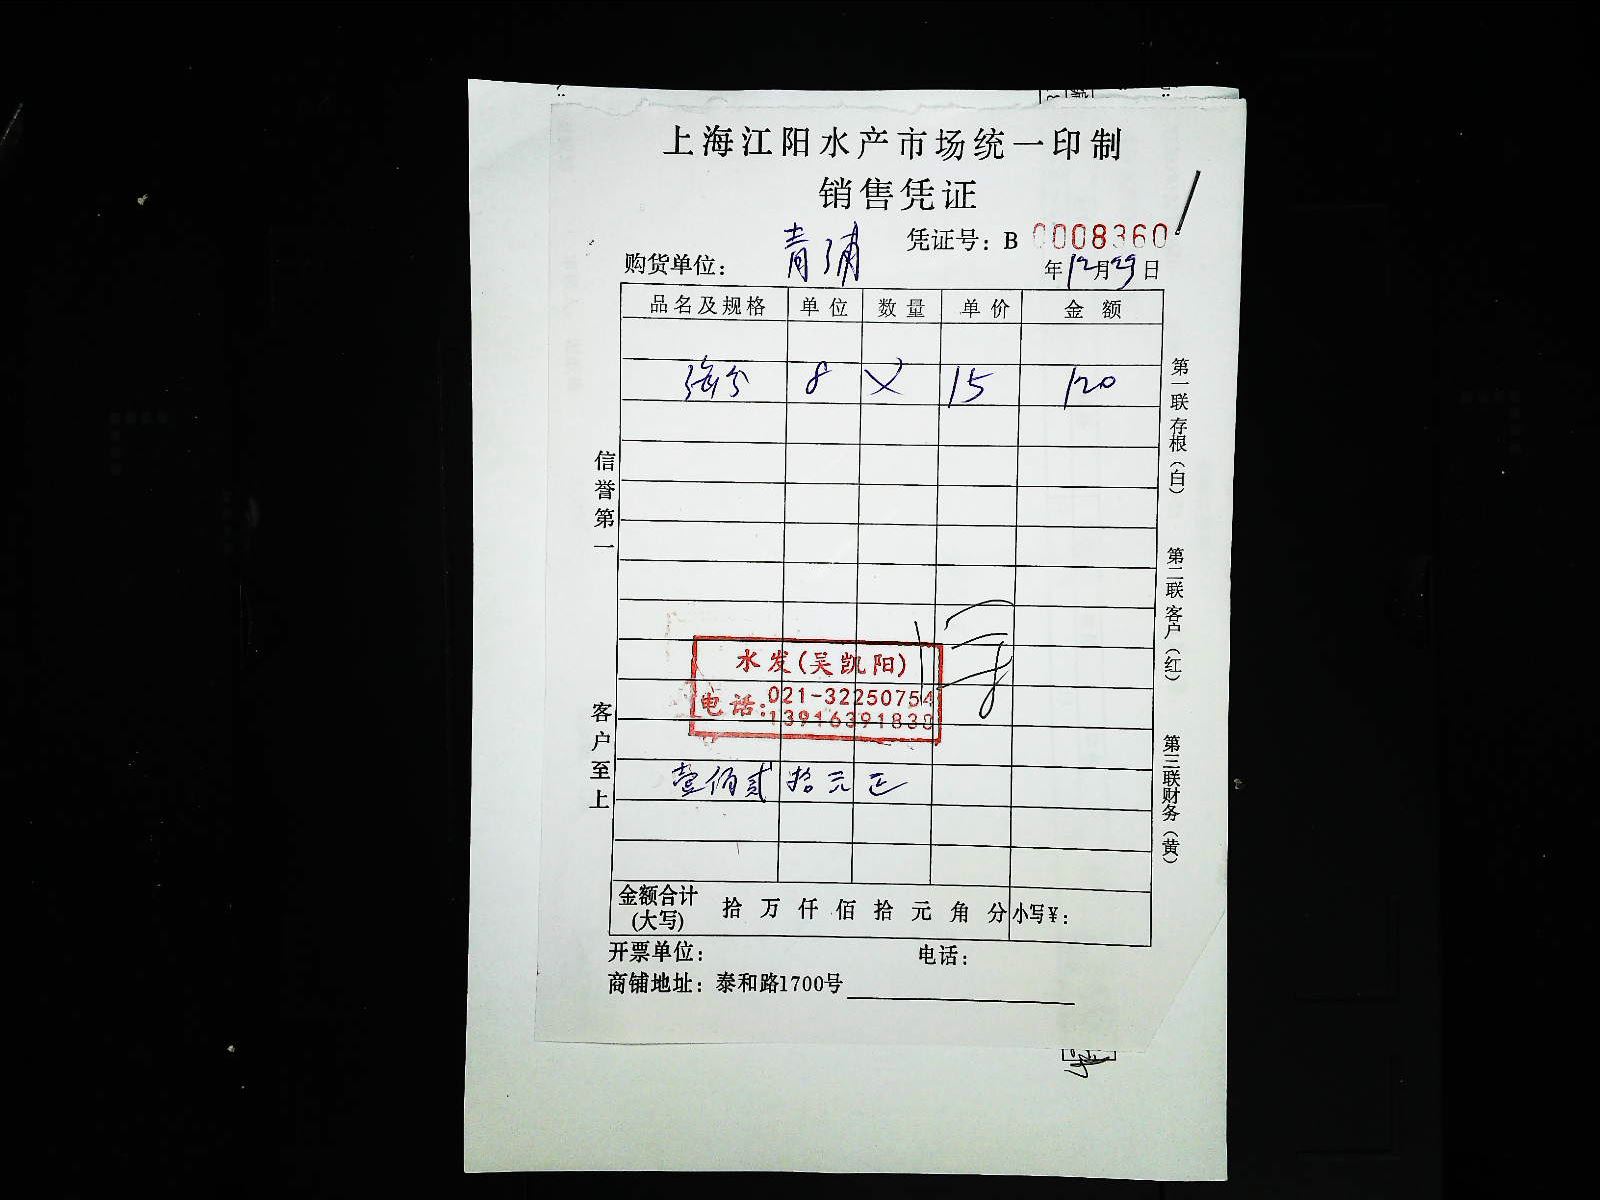 上海江阳水产市场统一印制
销售凭证
凭证号：B 0008360
购货单位： 青浦
年12月29日
品名及规格 单位 数量 单价 金额
8 × 15 120
水发(吴凯阳)
电话：021-32250754
13916391830
壹佰贰拾元正
金额合计(大写) 拾 万 仟 佰 拾 元 角 分 小写¥：
开票单位： 电话：
商铺地址：泰和路1700号
信誉第一
客户至上
第一联存根（白）
第二联客户（红）
第三联财务（黄）